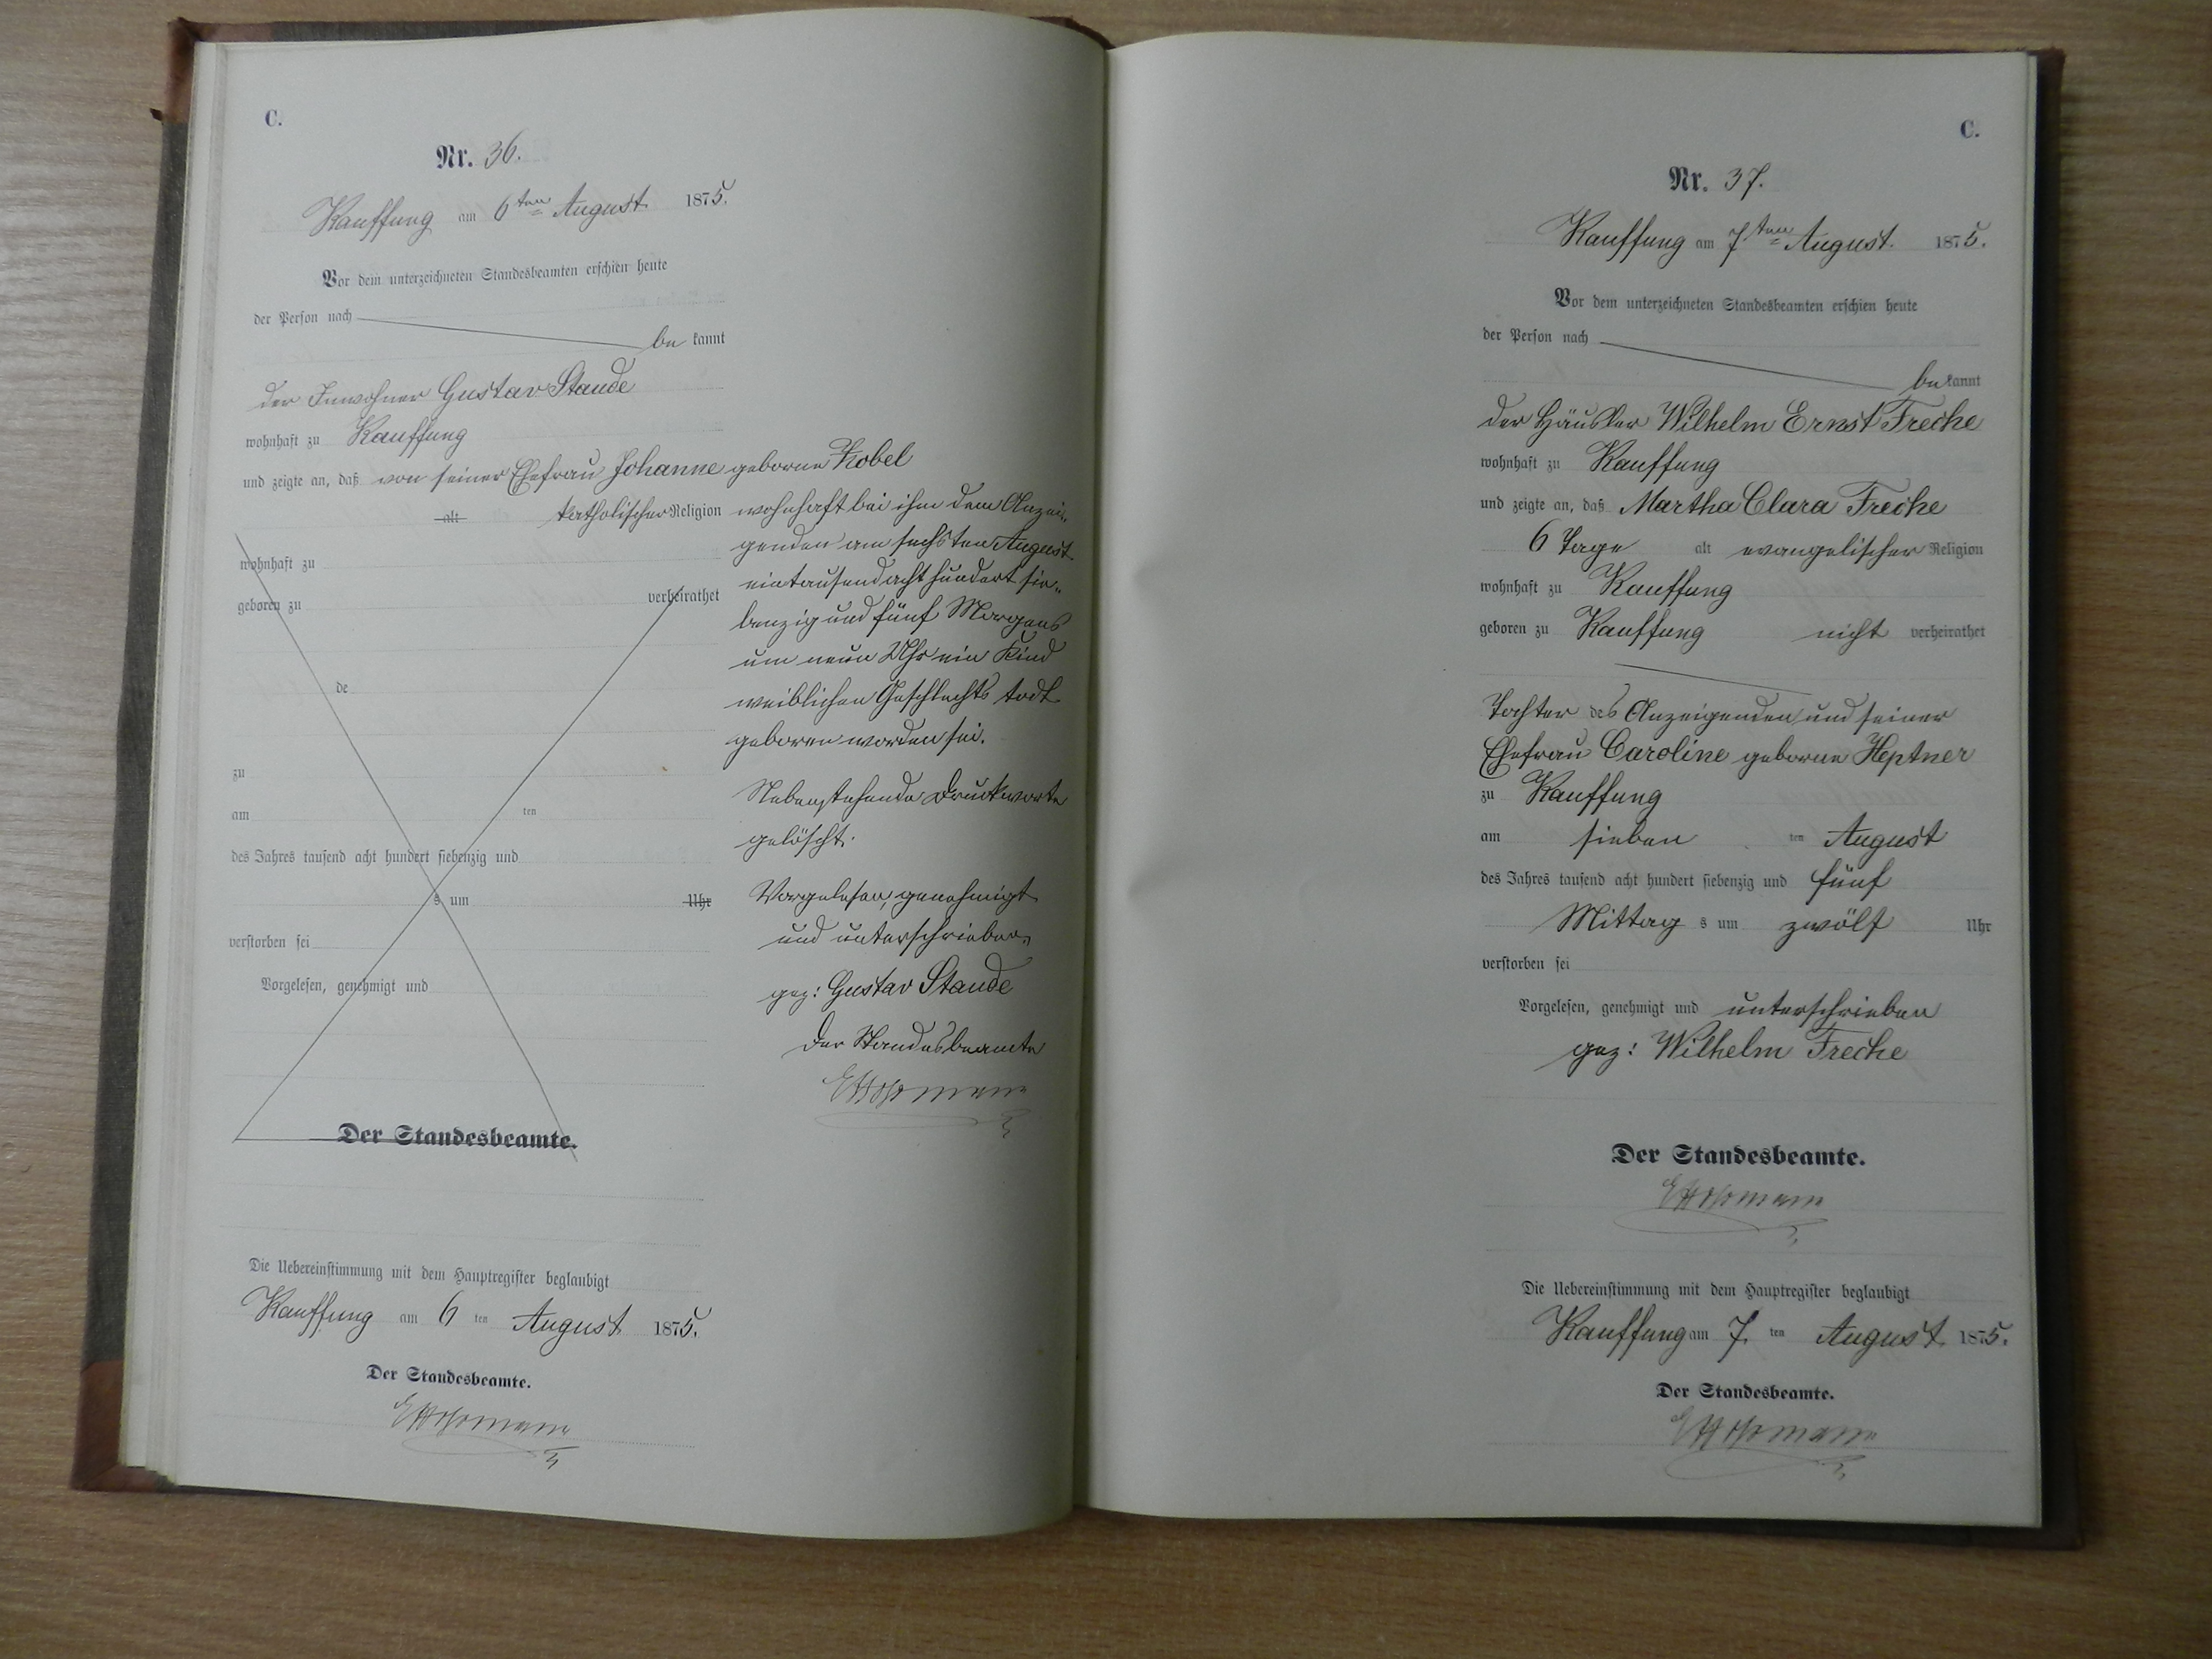 C.
Nr. 36.
Kauffung am 6ten August 1875.
Vor dem unterzeichneten Standesbeamten erschien heute
der Person nach
be kannt
der Inwohner Gustav Staude
wohnhaft zu Kauffung
und zeigte an, daß von seiner Ehefrau Johanne geborne Kobel
alt katholischer Religion wohnhaft bei ihm dem Anzei-
genden am sechsten August
wohnhaft zu
eintausendachthundert sie-
geboren zu verheirathet
benzig und fünf Morgens
um neun Uhr ein Kind
de
weiblichen Geschlechts todt
geboren worden sei.
zu
Nebenstehende Druckworte
am ten
gelöscht.
des Jahres tausend acht hundert siebenzig und
s um Uhr
Vorgelesen, genehmigt
verstorben sei
und unterschrieben
Vorgelesen, genehmigt und
gez: Gustav Staude
Der Standesbeamte
Der Standesbeamte.
Die Uebereinstimmung mit dem Hauptregister beglaubigt
Kauffung am 6 ten August 1875.
Der Standesbeamte.
C.
Nr. 37.
Kauffung am 7ten August 1875.
Vor dem unterzeichneten Standesbeamten erschien heute
der Person nach
be kannt
der Häusler Wilhelm Ernst Freche
wohnhaft zu Kauffung
und zeigte an, daß Martha Clara Freche
6 Tage alt evangelischer Religion
wohnhaft zu Kauffung
geboren zu Kauffung nicht verheirathet
Tochter des Anzeigenden und seiner
Ehefrau Caroline geborne Heptner
zu Kauffung
am sieben ten August
des Jahres tausend acht hundert siebenzig und fünf
Mittag s um zwölf Uhr
verstorben sei
Vorgelesen, genehmigt und unterschrieben
gez: Wilhelm Freche
Der Standesbeamte.
Die Uebereinstimmung mit dem Hauptregister beglaubigt
Kauffung am 7. ten August 1875.
Der Standesbeamte.